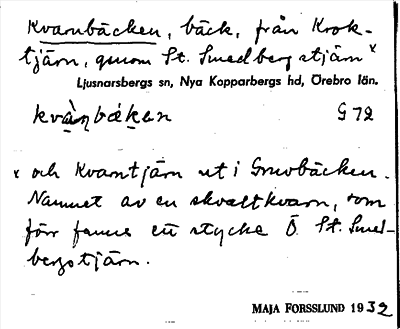 Kvarnbäcken, bäck, från Krok-
tjärn, genom St. Smedbergstjärn x
Ljusnarsbergs sn, Nya Kopparbergs hd, Örebro län.
kvàṇbäken G 72
x och Kvarntjärn ut i Gruvbäcken.
Namnet av en skvaltkvarn, som
förr fanns ett stycke Ö. St. Smed-
bergstjärn.
MAJA FORSSLUND 1932